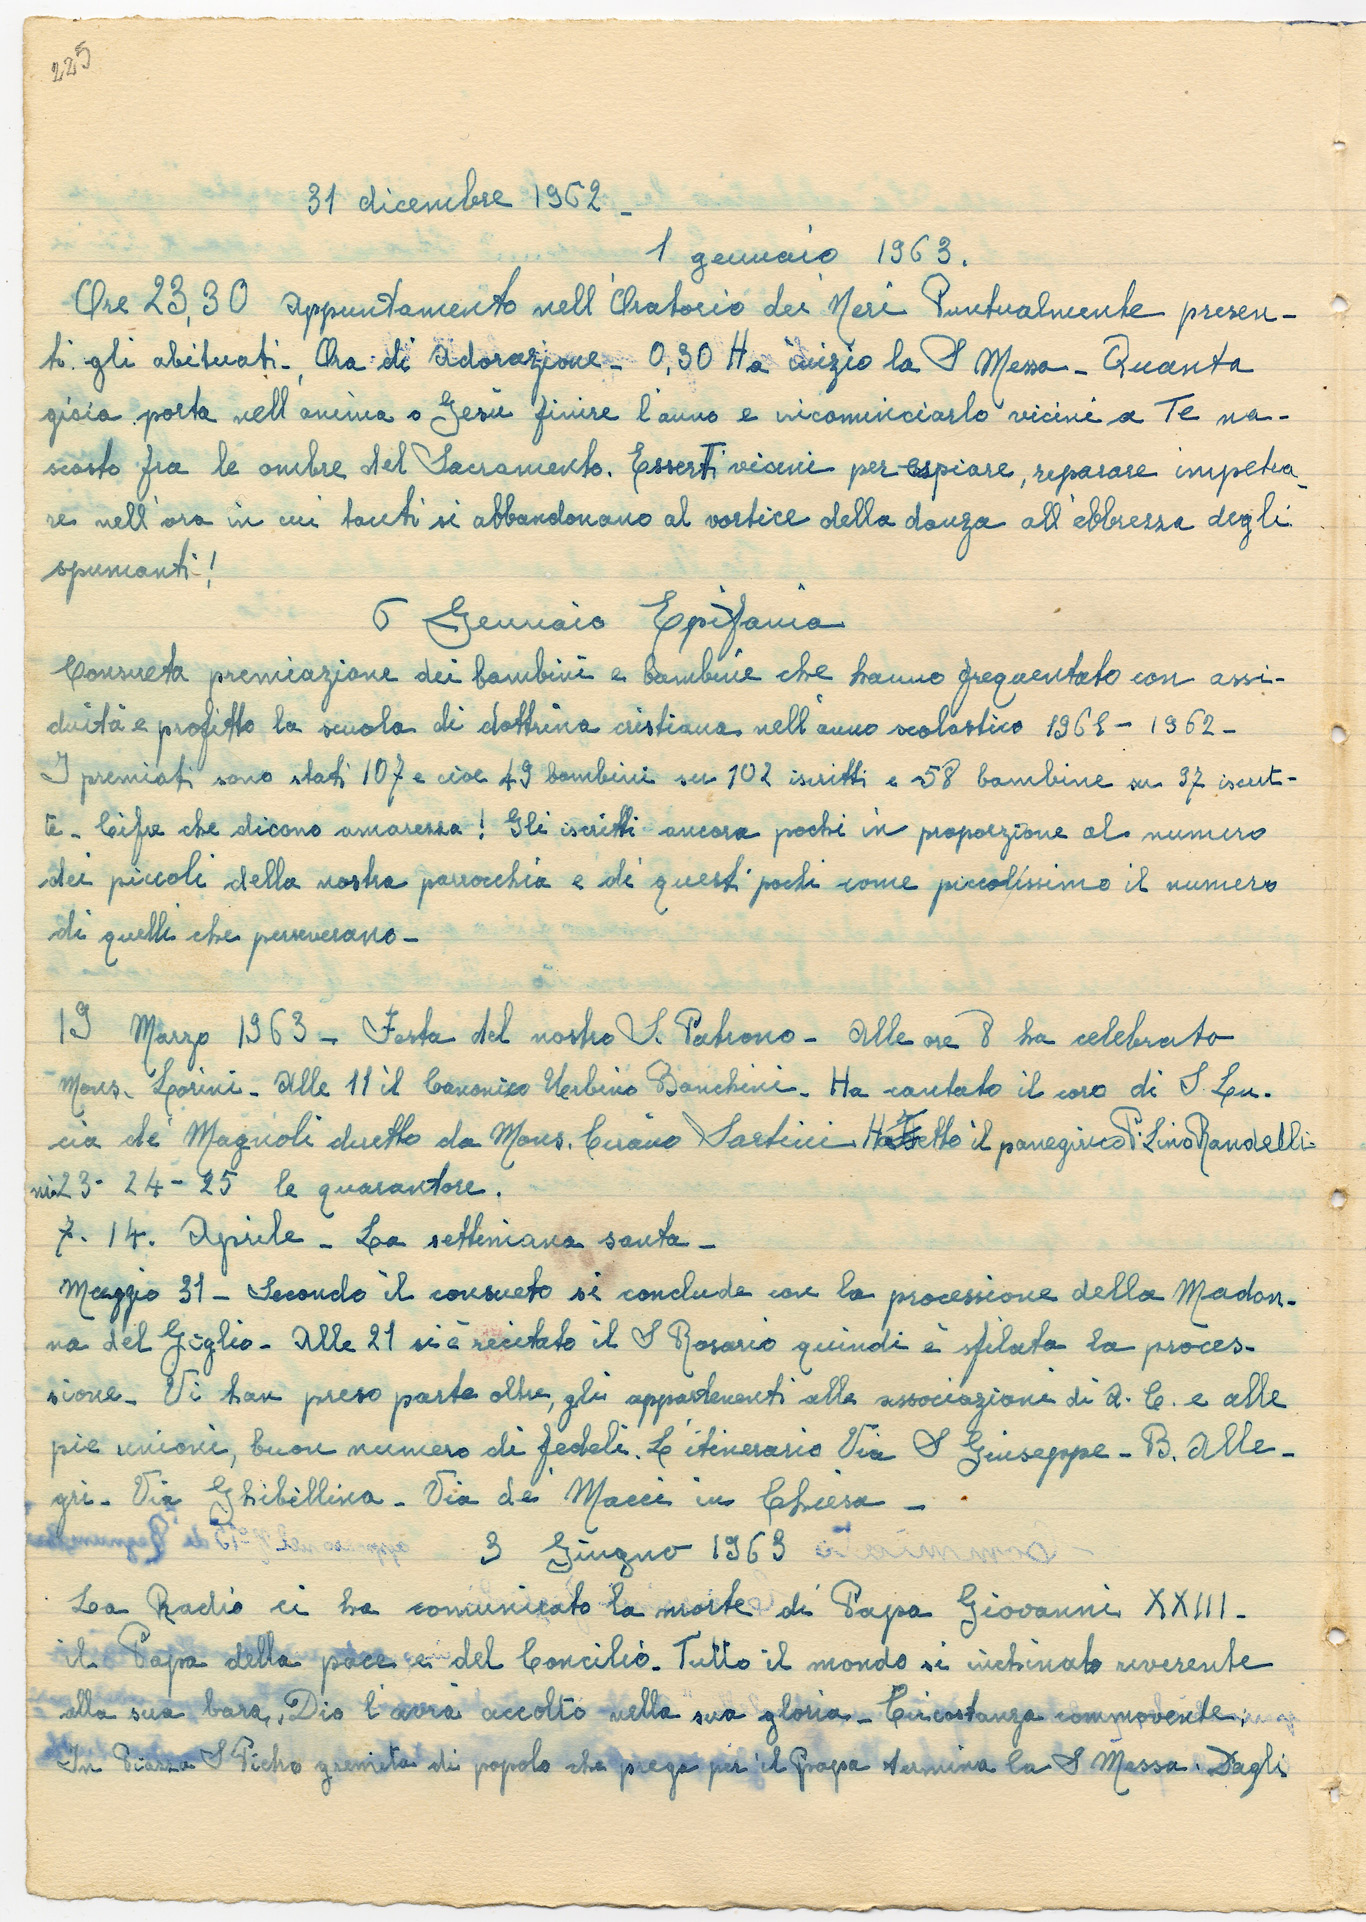 225
31 dicembre 1962 -
1 gennaio 1963.
Ore 23,30 Appuntamento nell'Oratorio dei Neri Puntualmente presen-
ti gli abituati -, Ora di Adorazione - 0,30 Ha inizio la S Messa - Quanta
gioia porta nell'anima o Gesù finire l'anno e ricominciarlo vicini a Te na-
scosto fra le ombre del Sacramento. Esserti vicini per espiare, reparare impetra-
re nell'ora in cui tanti si abbandonano al vortice della danza all'ebbrezza degli
spumanti!
6 Gennaio Epifania
Consueta premiazione dei bambini e bambine che hanno frequentato con assi-
duità e profitto la scuola di dottrina cristiana nell'anno scolastico 1961 - 1962 -
I premiati sono stati 107 e cioe 49 bambini su 102 iscritti e 58 bambine su 97 iscrit-
te - Cifre che dicono amarezza! Gli iscritti ancora pochi in proporzione al numero
dei piccoli della nostra parrocchia e di questi pochi come piccolissimo il numero
di quelli che perseverano -
19 Marzo 1963 - Festa del nostro S. Patrono - Alle ore 8 ha celebrato
Mons. Lorini - Alle 11 il Canonico Urbino Banchini - Ha cantato il coro di S. Lu-
cia de' Magnoli diretto da Mons. Sartini Ha detto il panegirico P. Lino Randelli-
ni 23 - 24 - 25 le quarantore.
7. 14. Aprile - La settimana santa -
Maggio 31 - Secondo il consueto si conclude con la processione della Madon-
na del Giglio - Alle 21 si è recitato il S Rosario quindi è sfilata la proces-
sione - Vi han preso parte oltre, gli appartenenti alle associazioni di A. C. e alle
pie unioni, buon numero di fedeli. L'itinerario Via S Giuseppe - B. Alle-
gri - Via Ghibellina - Via de' Macci in Chiesa -
3 Giugno 1963
La Radio ci ha comunicato la morte di Papa Giovanni XXIII -
il Papa della pace e del Concilio - Tutto il mondo si inchinato reverente
alla sua bara, Dio l'avrà accolto nella sua gloria - Circostanza commovente,
In Piazza S Pietro gremita di popolo che prega per il Papa termina la S Messa. Dagli